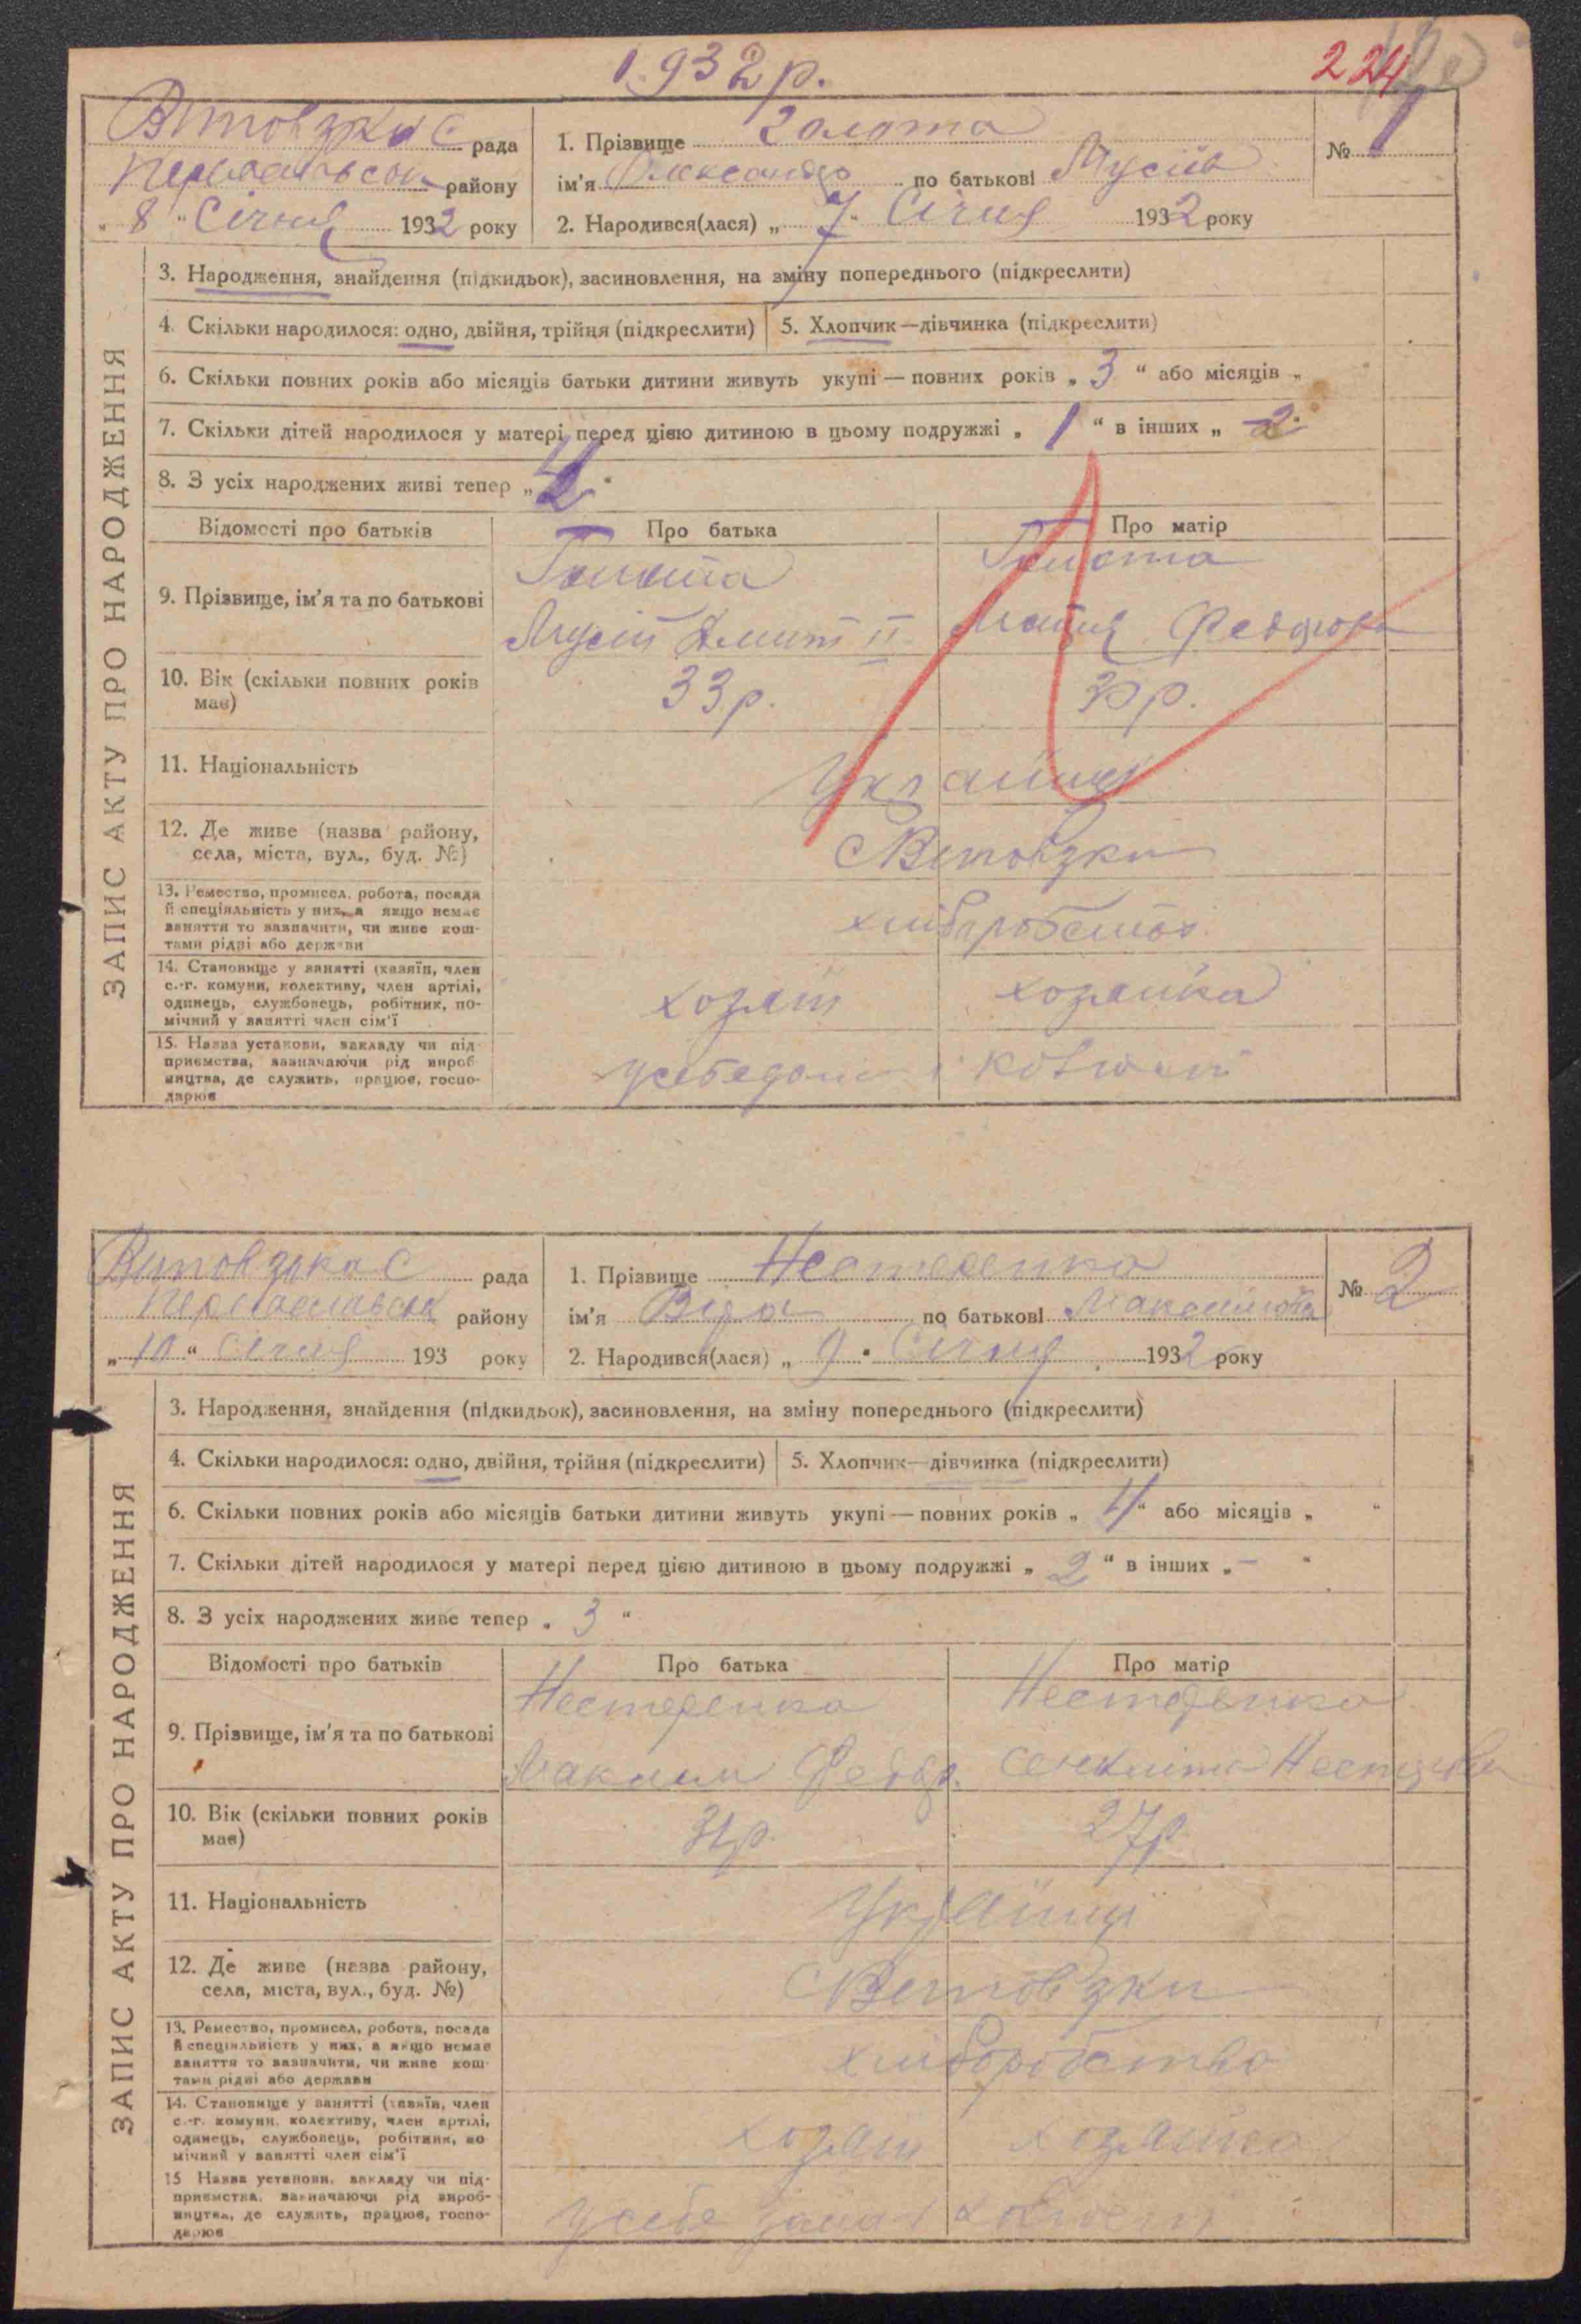 1932 р.
224
рада
району
„ 8 “ Січня 1932 року
1. Прізвище Золота
ім'я Олександр по батькові Мусіїв
2. Народився(лася) „ 7 “ Січня 1932 року
№ 1
ЗАПИС АКТУ ПРО НАРОДЖЕННЯ
3. Народження, знайдення (підкидьок), засиновлення, на зміну попереднього (підкреслити)
4. Скільки народилося: одно, двійня, трійня (підкреслити)
5. Хлопчик—дівчинка (підкреслити)
6. Скільки повних років або місяців батьки дитини живуть укупі — повних років „ 3 “ або місяців „
7. Скільки дітей народилося у матері перед цією дитиною в цьому подружжі „ 1 “ в інших „ 2 “
8. З усіх народжених живі тепер „ “
Відомості про батьків
Про батька
Про матір
9. Прізвище, ім'я та по батькові
Мусій Дмит
Федоров
10. Вік (скільки повних років має)
33 р.
30 р.
11. Національність
Українці
12. Де живе (назва району, села, міста, вул., буд. №)
13. Ремество, промисел, робота, посада й спеціяльність у них, а якщо немає заняття то зазначити, чи живе коштами рідні або держави
14. Становище у занятті (хазяїн, член с.-г. комуни, колективу, член артілі, одинець, службовець, робітник, помічний у занятті член сім'ї
хозяїн
хозяйка
15. Назва установи, закладу чи підприємства, зазначаючи рід виробництва, де служить, працює, господарює
рада
Переяславськ району
„ 10 “ Січня 193 року
1. Прізвище Нестеренко
ім'я Віра по батькові Максимова
2. Народився(лася) „ 9 “ Січня 1932 року
№ 2
ЗАПИС АКТУ ПРО НАРОДЖЕННЯ
3. Народження, знайдення (підкидьок), засиновлення, на зміну попереднього (підкреслити)
4. Скільки народилося: одно, двійня, трійня (підкреслити)
5. Хлопчик—дівчинка (підкреслити)
6. Скільки повних років або місяців батьки дитини живуть укупі — повних років „ 4 “ або місяців „ “
7. Скільки дітей народилося у матері перед цією дитиною в цьому подружжі „ 2 “ в інших „ – “
8. З усіх народжених живе тепер „ 3 “
Відомості про батьків
Про батька
Про матір
9. Прізвище, ім'я та по батькові
Нестеренко
Нестеренко
Максим Федор.
10. Вік (скільки повних років має)
31 р.
27 р.
11. Національність
Українці
12. Де живе (назва району, села, міста, вул., буд. №)
13. Ремество, промисел, робота, посада й спеціяльність у них, а якщо немає заняття то зазначити, чи живе коштами рідні або держави
хліборобство
14. Становище у занятті (хазяїн, член с.-г. комуни, колективу, член артілі, одинець, службовець, робітник, помічний у занятті член сім'ї
хозяїн
хозяйка
15 Назва установи, закладу чи підприємства, зазначаючи рід виробництва, де служить, працює, господарює